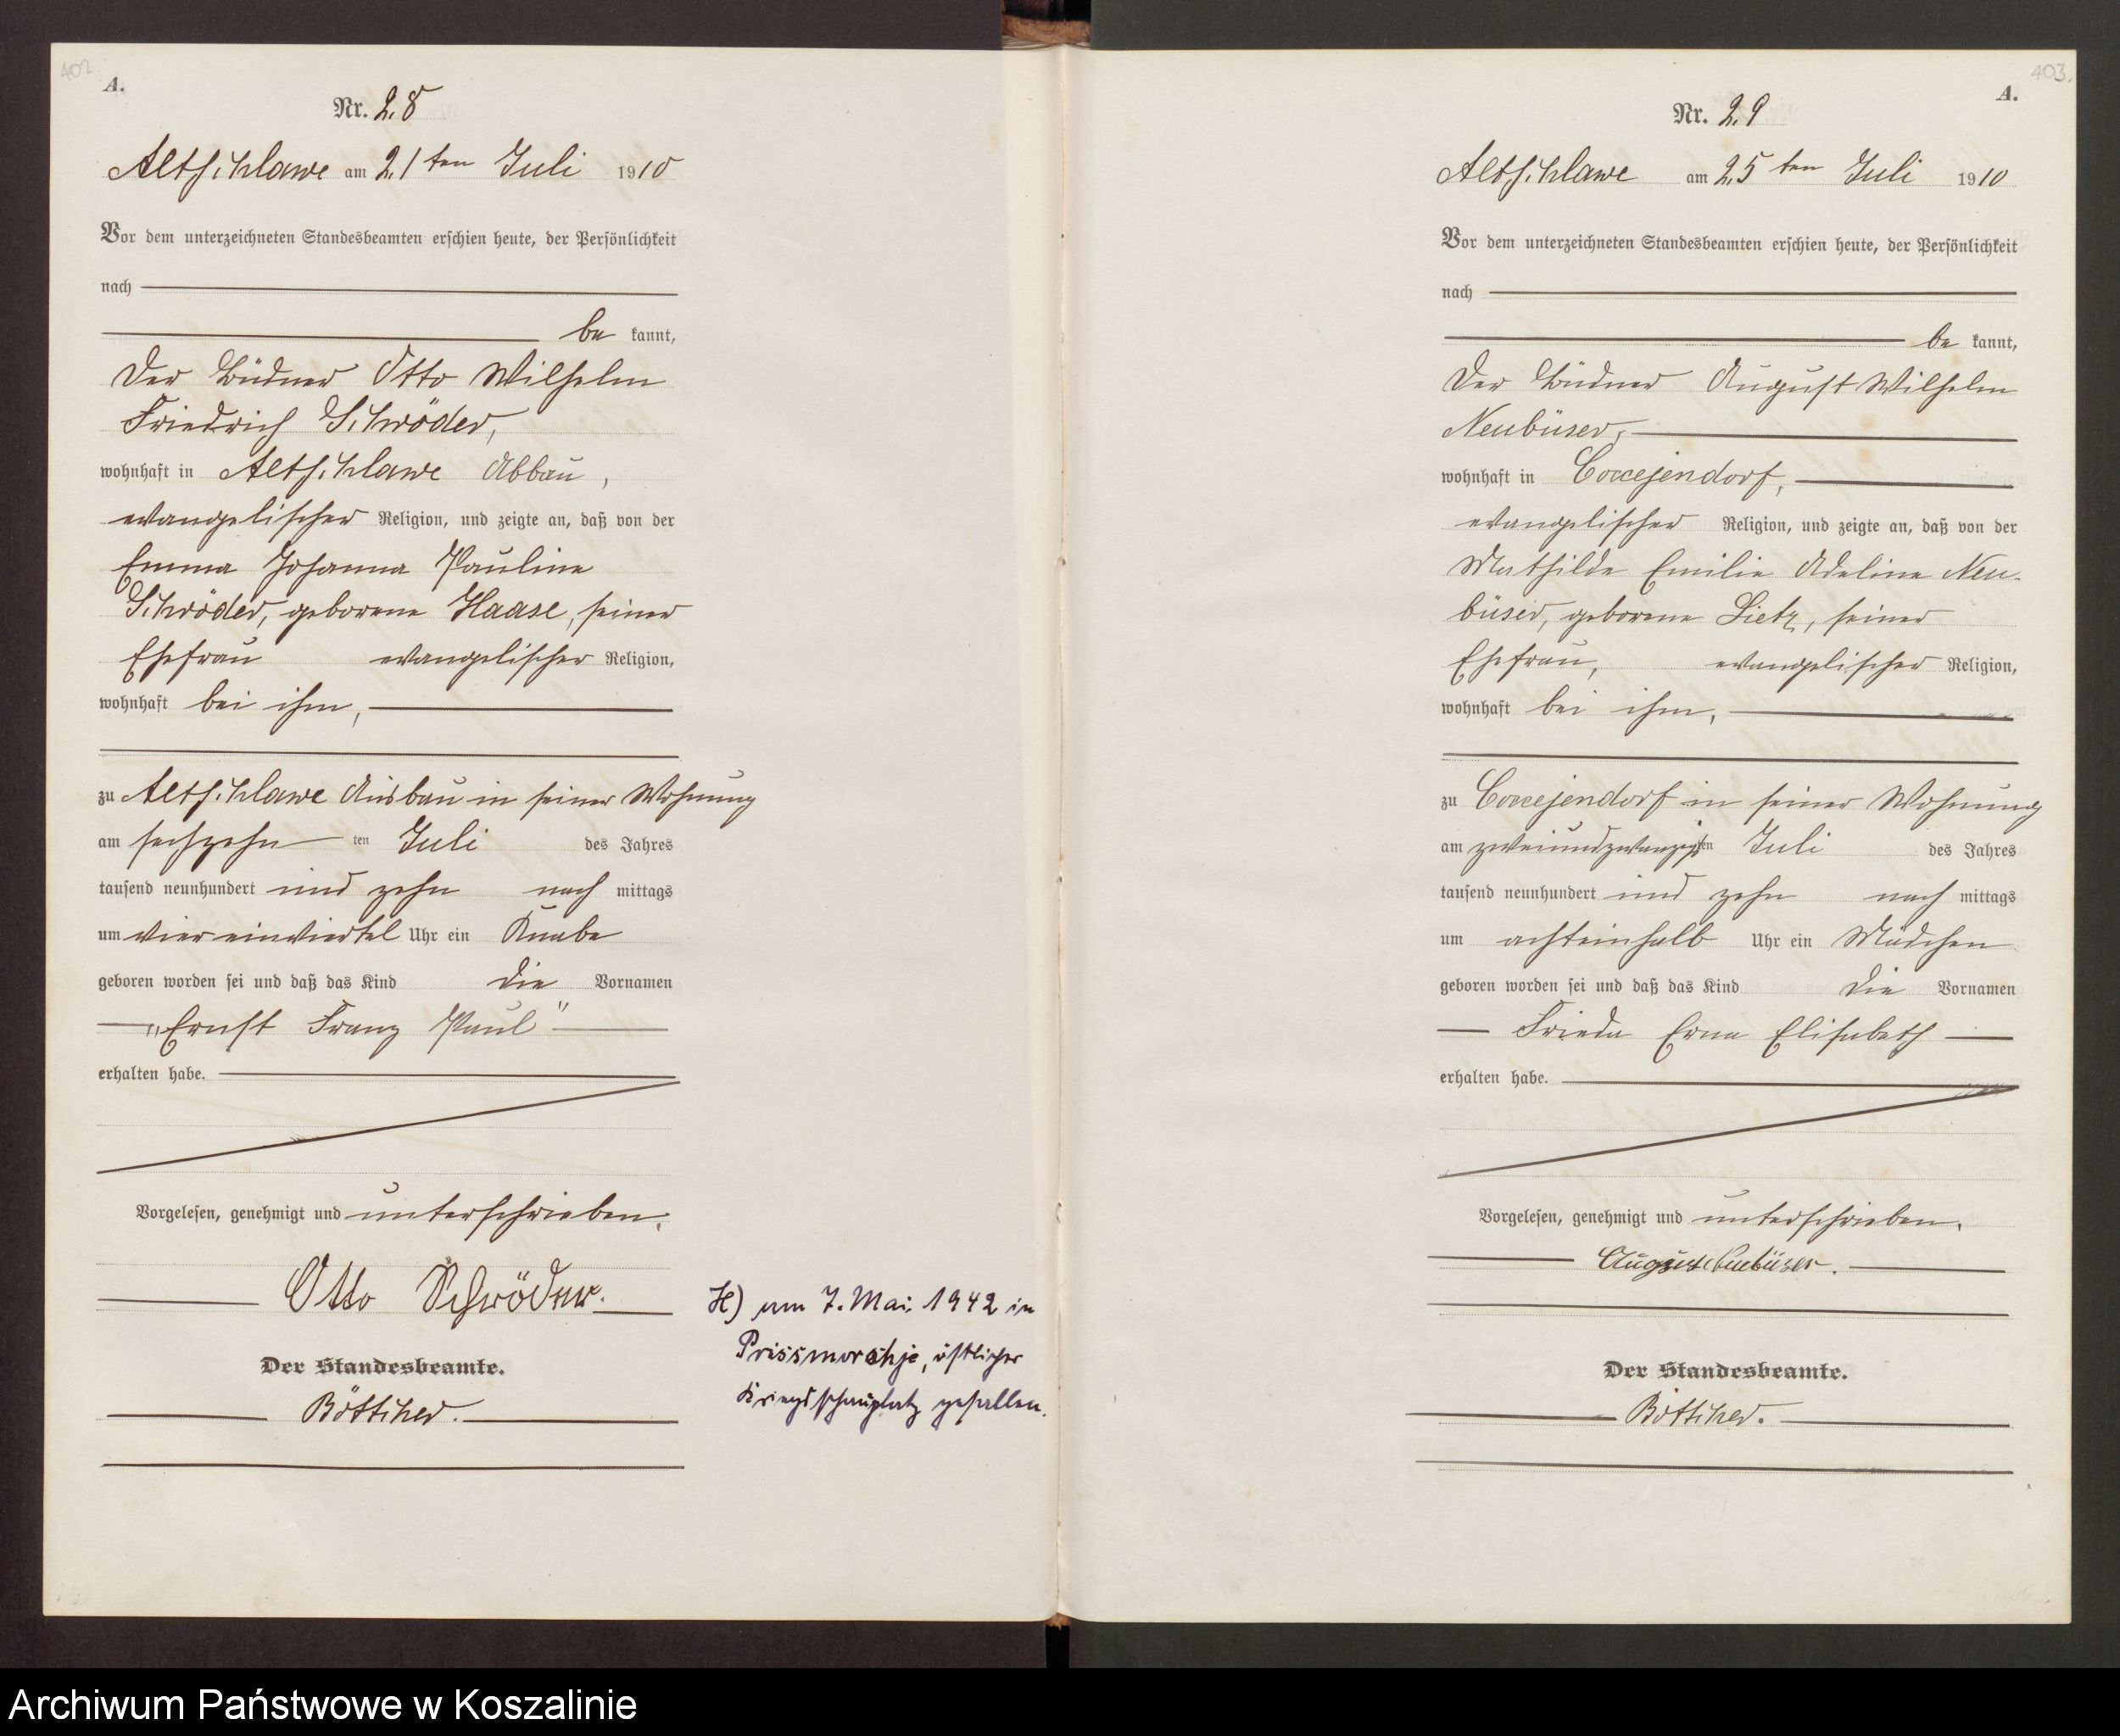 402.
A.
Nr. 28
Altschlawe am 21ten Juli 1910
Vor dem unterzeichneten Standesbeamten erschien heute, der Persönlichkeit
nach
be kannt,
Der Büdner Otto Wilhelm
Friedrich Schröder,
wohnhaft in Altschlawe Abbau,
evangelischer Religion, und zeigte an, daß von der
Emma Johanna Pauline
Schröder, geborene Haase, seiner
Ehefrau evangelischer Religion,
wohnhaft bei ihm,
zu Altschlawe Ausbau in seiner Wohnung
am sechzehn ten Juli des Jahres
tausend neunhundert und zehn nach mittags
um vier einviertel Uhr ein Knabe
geboren worden sei und daß das Kind die Vornamen
„Ernst Franz Paul"
erhalten habe.
Vorgelesen, genehmigt und unterschrieben.
Otto Schröder.
Der Standesbeamte.
Bötticher.
H) am 7. Mai 1942 in
Prissmorohje, östlicher
Kriegsschauplatz gefallen.
403.
A.
Nr. 29
Altschlawe am 25ten Juli 1910
Vor dem unterzeichneten Standesbeamten erschien heute, der Persönlichkeit
nach
be kannt,
Der Büdner August Wilhelm
Neubüser,
wohnhaft in Coccejendorf,
evangelischer Religion, und zeigte an, daß von der
Mathilde Emilie Adeline Neu-
büser, geborene Lietz, seiner
Ehefrau, evangelischer Religion,
wohnhaft bei ihm,
zu Coccejendorf in seiner Wohnung
am zweiundzwanzigsten Juli des Jahres
tausend neunhundert und zehn nach mittags
um achteinhalb Uhr ein Mädchen
geboren worden sei und daß das Kind die Vornamen
Frieda Erna Elisabeth
erhalten habe.
Vorgelesen, genehmigt und unterschrieben.
August Neubüser.
Der Standesbeamte.
Bötticher.
Archiwum Państwowe w Koszalinie